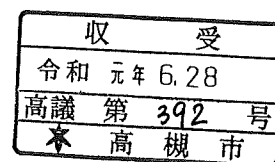 収受
令和 元年 6.28
高議 第 392 号
高槻市